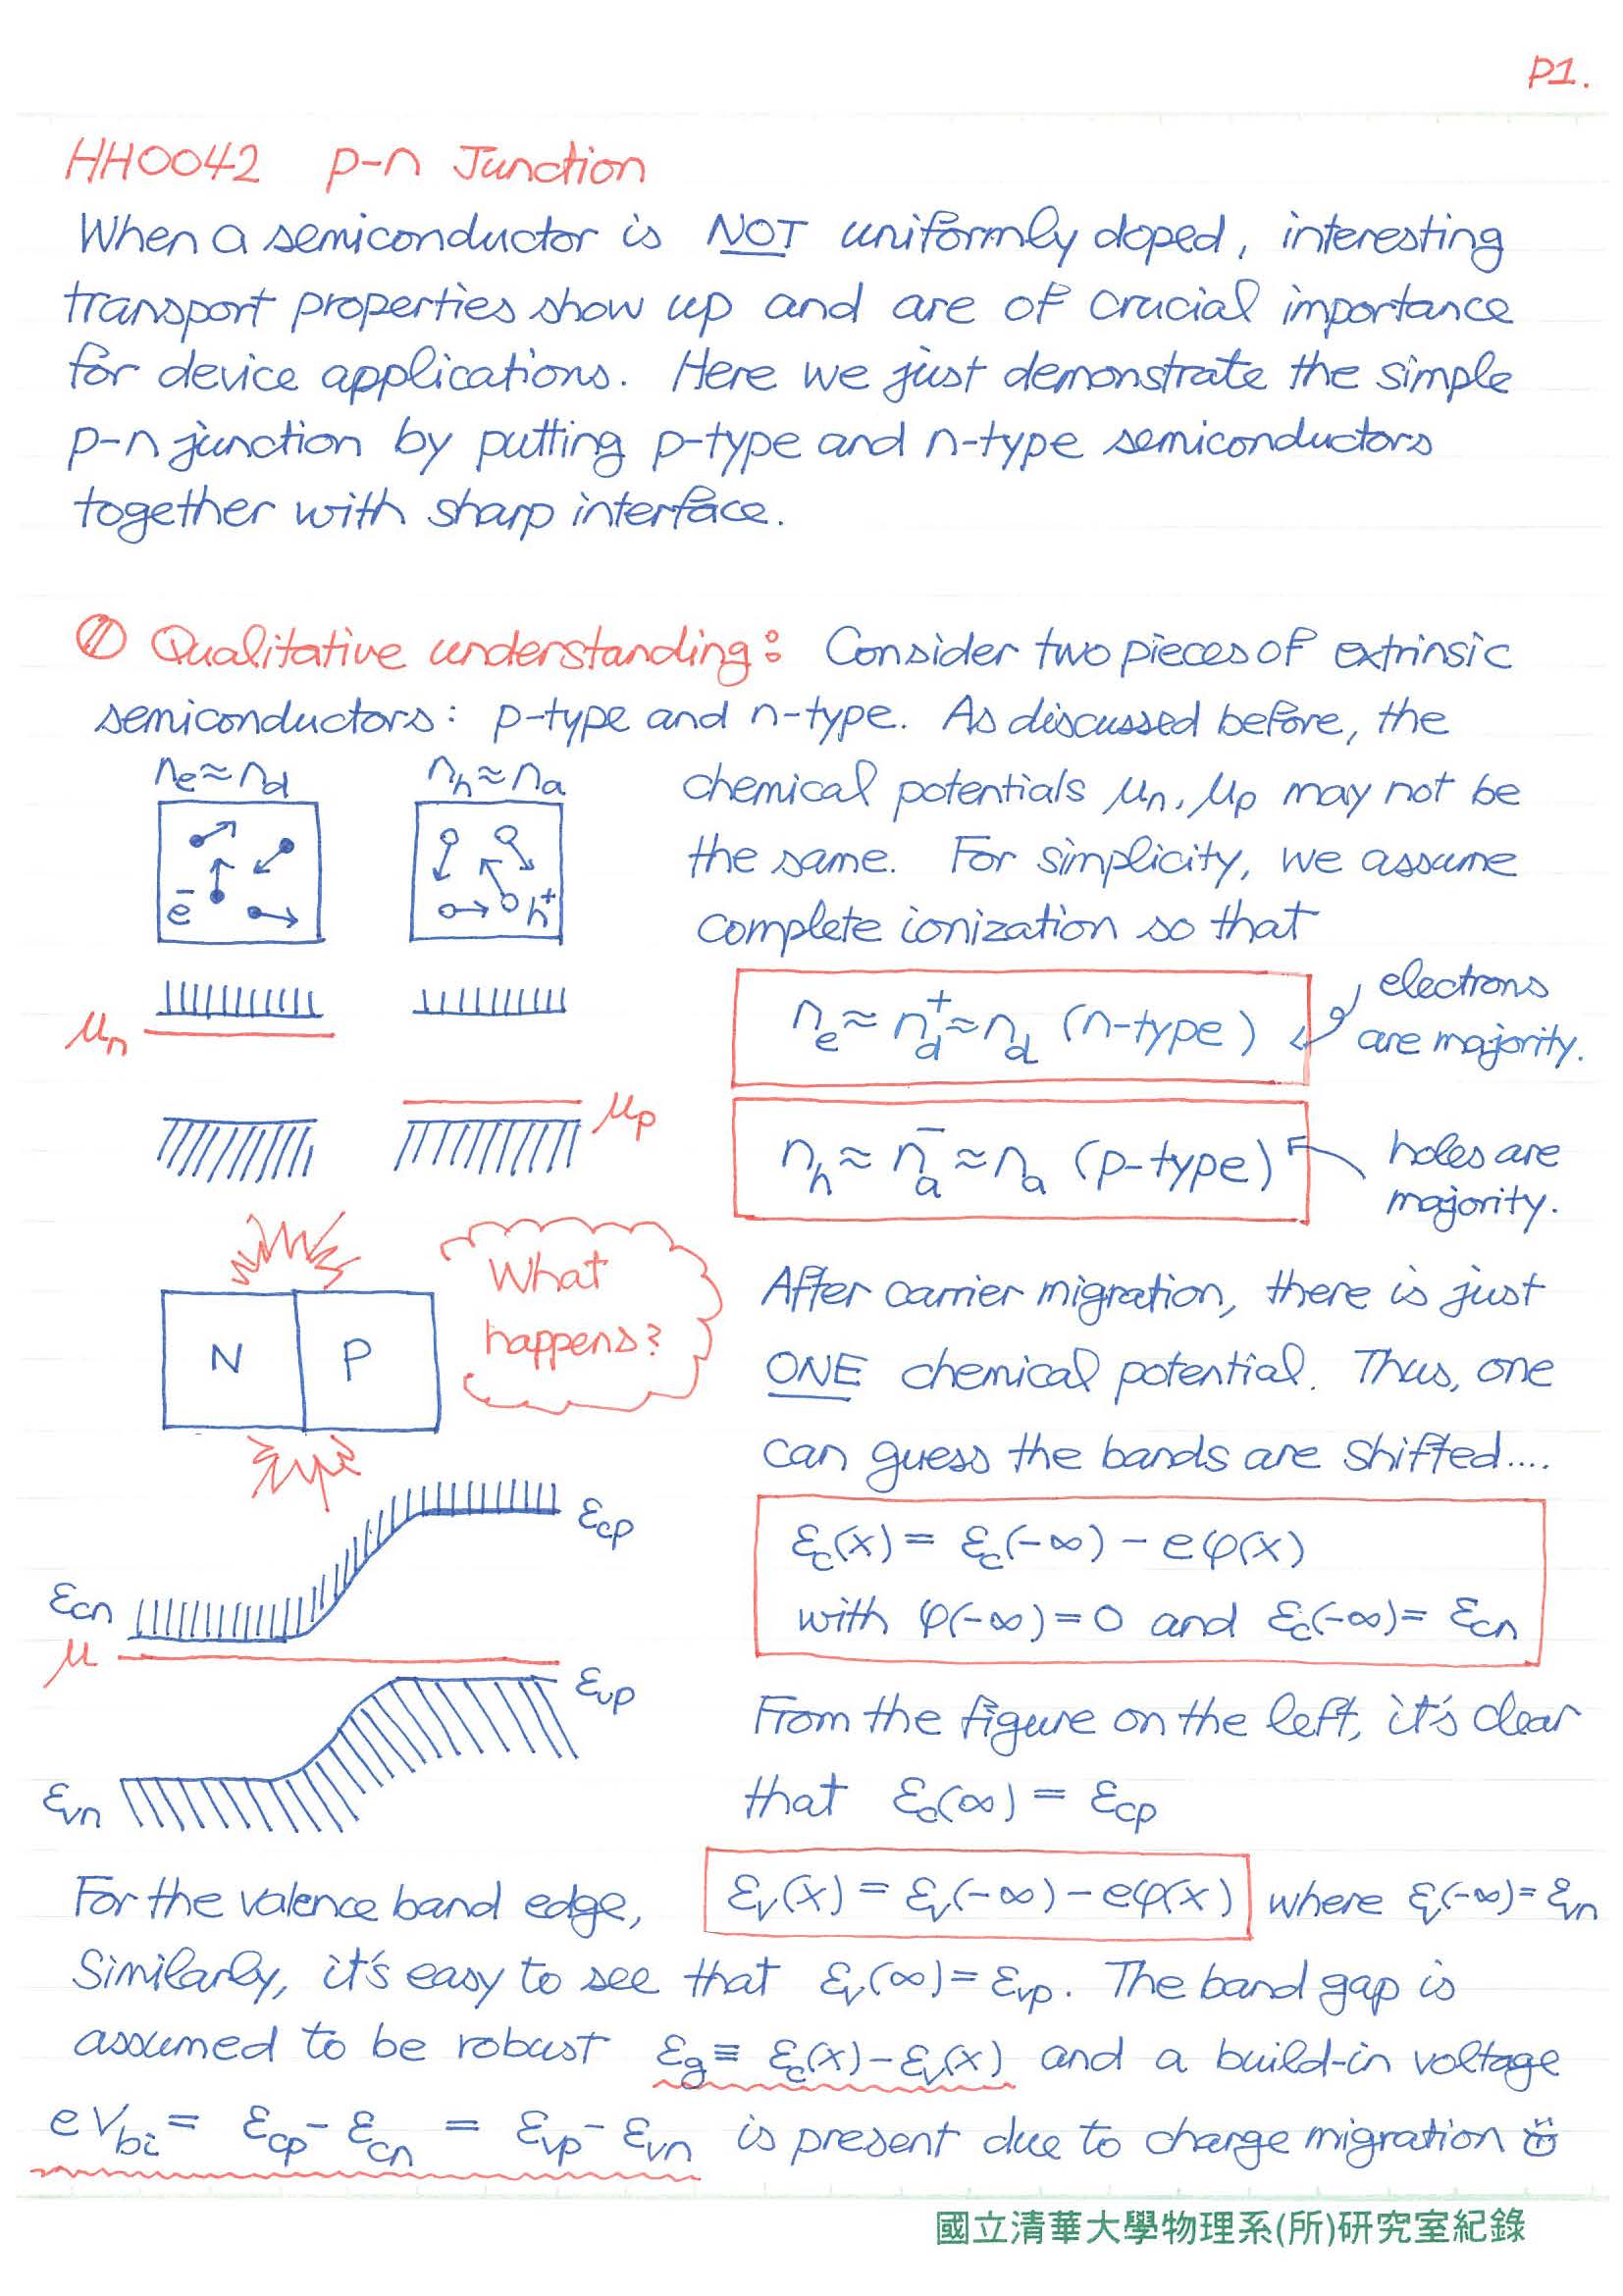 P1.
HH0042 p-n Junction
When a semiconductor is NOT uniformly doped, interesting
transport properties show up and are of crucial importance
for device applications. Here we just demonstrate the simple
p-n junction by putting p-type and n-type semiconductors
together with sharp interface.
① Qualitative understanding: Consider two pieces of extrinsic
semiconductors: p-type and n-type. As discussed before, the
nₑ≈n_d
n_h≈nₐ
chemical potentials μn, μp may not be
the same. For simplicity, we assume
e⁻
h⁺
complete ionization so that
μn
nₑ≈n_d⁺≈n_d (n-type)
electrons
are majority.
μp
n_h≈nₐ⁻≈nₐ (p-type)
holes are
majority.
What
happens?
N
P
After carrier migration, there is just
ONE chemical potential. Thus, one
can guess the bands are shifted....
εcp
εcn
μ
εvp
εvn
εc(x) = εc(-∞) - eφ(x)
with φ(-∞)=0 and εc(-∞)= εcn
From the figure on the left, it's clear
that εc(∞) = εcp
For the valence band edge, εv(x) = εv(-∞) - eφ(x) where εv(-∞)= εvn
Similarly, it's easy to see that εv(∞)= εvp. The band gap is
assumed to be robust εg ≡ εc(x)-εv(x) and a build-in voltage
eVbi = εcp - εcn = εvp - εvn is present due to charge migration
國立清華大學物理系(所)研究室紀錄